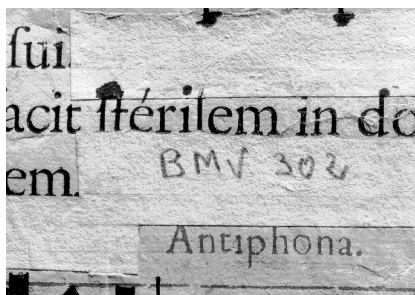 ſui.
acit ſtérilem in do
BMV 302
em.
Antiphona.